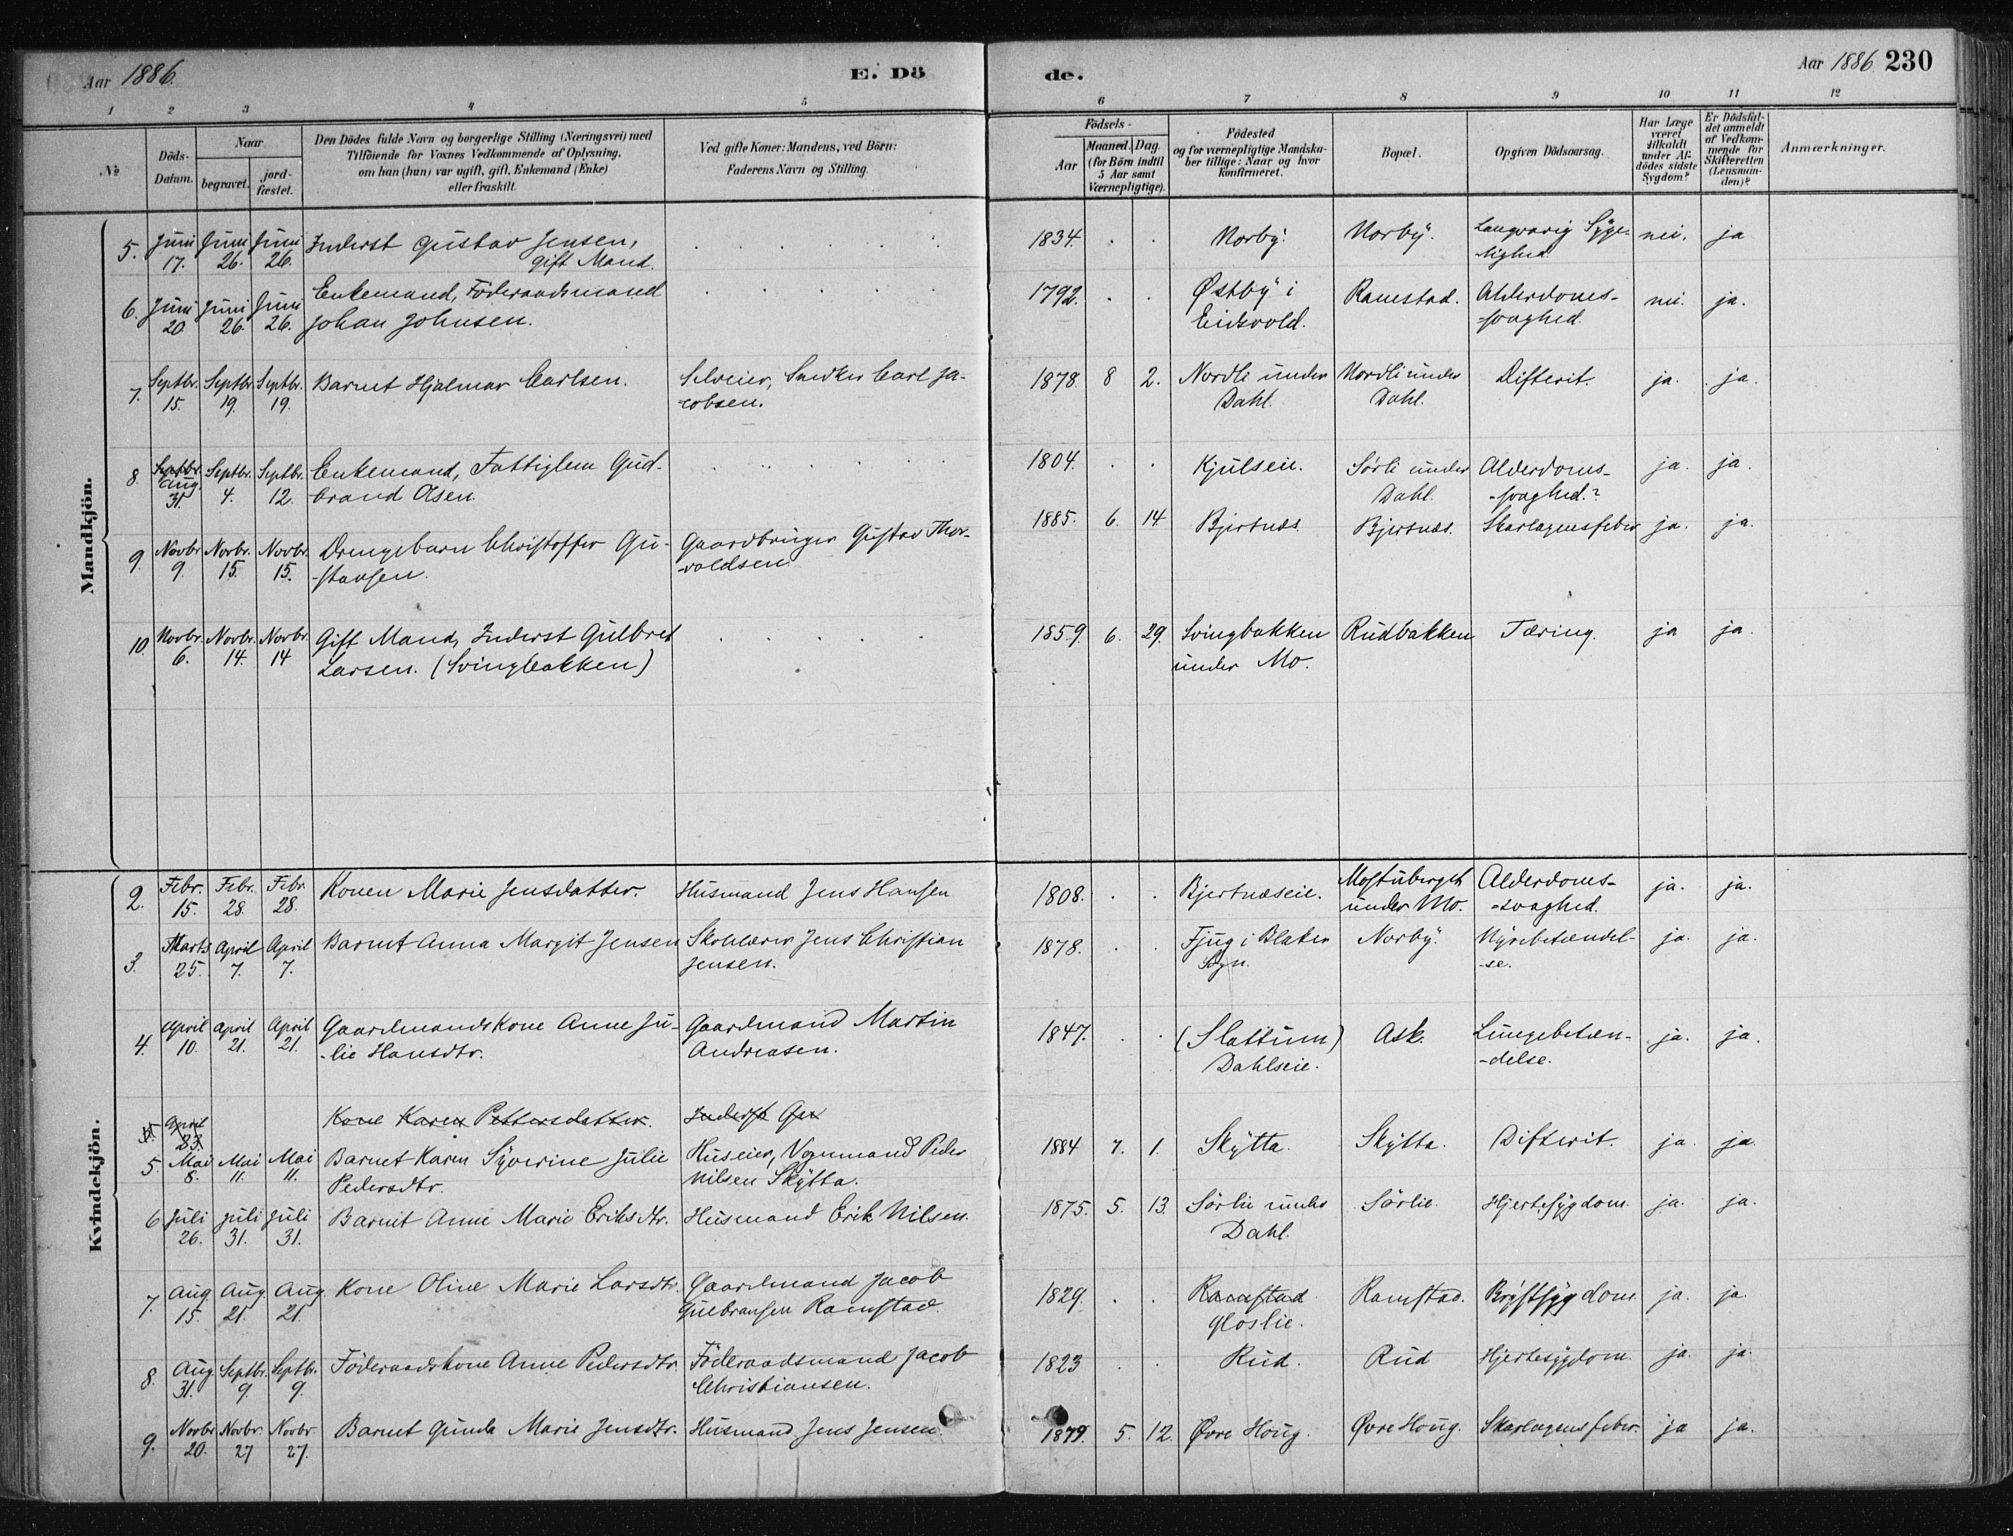 Aar 1886. E. Dö
de. Aar 1886. 230
1 2 3 4 5 6 7 8 9 10 11 12
№
Döds-
Datum.
Naar
begravet.
jord-
fæstet.
Den Dödes fulde Navn og borgerlige Stilling (Næringsvei) med
Tilföiende for Voxnes Vedkommende af Oplysning,
om han (hun) var ugift, gift, Enkemand (Enke)
eller fraskilt.
Ved gifte Koner: Mandens, ved Börn:
Faderens Navn og Stilling.
Födsels-
Aar
Maaned. Dag.
(for Börn indtil
5 Aar samt
Værnepligtige).
Födested
og for værnepligtige Mandska-
ber tillige: Naar og hvor
konfirmeret.
Bopæl.
Opgiven Dödsaarsag.
Har Læge
været
tilkaldt
under Af-
dödes sidste
Sygdom?
Er Dödsfal-
det anmeldt
af Vedkom-
mende for
Skifteretten
(Lensman-
den)?
Anmærkninger.
Mandkjön.
5. Juni Juni Juni Inderst Gustav Jensen, 1834. Norby. Norby. Langvarig Syge- nei. ja
17. 26. 26. gift Mand. -lighed
6. Juni Juni Juni Enkemand, Föderaadsmand 1792. Østby i Ramstad. Alderdoms- nei. ja.
20. 26. 26. Johan Johnsen. Eidsvold. -svaghed.
7. Septbr. Septbr. Septbr. Barnet Hjalmar Carlsen. Selveier, Snedker Carl Ja- 1878. 8 2. Nordli under Nordli under Difterit. ja. ja.
15. 19. 19. -cobsen. Dahl. Dahl.
8. Septbr. Septbr. Septbr. Enkemand, Fattiglem Gud- 1804. Kjulseie. Sørli under Alderdoms- ja. ja.
Aug. 31. 4. 12. -brand Olsen. Dahl. -svaghed.?
9. Novbr. Novbr. Novbr. Drengebarn Christoffer Gu- Gaardbruger Gustav Thor- 1885. 6. 14. Bjertnæs. Bjertnæs. Skarlagensfeber ja. ja.
9. 15. 15. -stavsen. -valdsen.
10. Novbr. Novbr. Novbr. Gift Mand, Inderst Gulbrd 1859. 6. 29. Svingbakken Rudbakken Tæring. ja ja.
6. 14. 14 Larsen. (Svingbakken) under Mo.
Kvindekjön.
2. Febr. Febr. Febr. Konen Marie Jensdatter. Husmand Jens Hansen 1808. Bjertnæseie. Mostuberget Alderdoms- ja. ja.
15. 28. 28. under Mo. -svaghed.
3. Marts April April Barnet Anna Margit Jensen Skolelærer Jens Christian 1878. Fjug i Blaker Norby. Nyrebetændel- ja. ja.
25. 7. 7. Jensen. Sogn. -se.
4. April April April Gaardmandskone Anne Ju- Gaardmand Martin 1847. (Slattum) Ask. Lungebetæn- ja. ja.
10. 21. 21. -lie Hansdtr. Andreasen. Dahlseie. -delse.
5. April Kone Karen Pettersdatter. Inderst Gu
23.
5. Mai Mai Mai Barnet Karen Syverine Julie Huseier, Vognmand Peder 1884 7. 1. Skytta. Skytta. Difterit. ja. ja.
8. 11. 11. Pedersdtr. Nilsen Skytta.
6 Juli Juli Juli Barnet Anne Marie Eriksdtr. Husmand Erik Nilsen. 1875. 5. 13. Sørlie under Sørlie. Hjertesygdom. ja. ja.
26. 31. 31. Dahl.
7. Aug. Aug. Aug. Kone Oline Marie Larsdtr. Gaardmand Jacob 1829. Ramstad Ramstad. Brystsygdom ja. ja.
15. 21. 21. Gulbransen Ramstad. Glöslie.
8. Aug Septbr. Septbr. Föderaadskone Anne Pedersdtr. Föderaadsmand Jacob 1823 Rud. Rud Hjertesygdom. ja. ja.
31. 9. 9. Christiansen.
9. Novbr Novbr. Novbr. Barnet Gunda Marie Jensdtr. Husmand Jens Jensen 1879. 5. 12. Øvre Houg. Øvre Houg. Skarlagensfeber. ja ja.
20. 27 27.